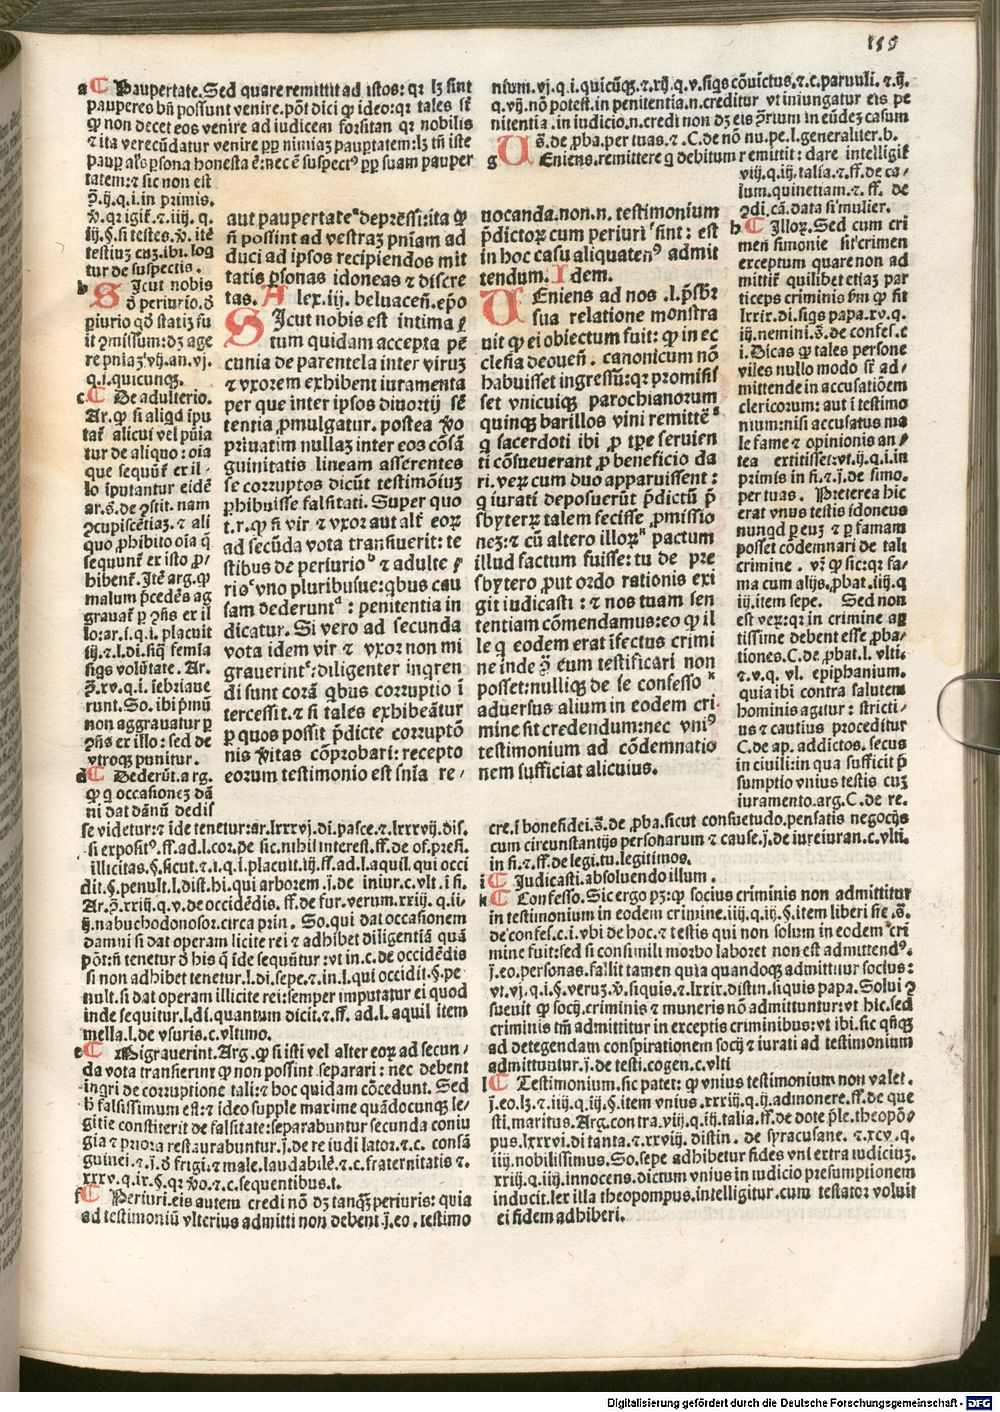 159
a Paupertate. Sed quare remittit ad istos: qꝛ lꝫ sint
pauperes bñ possunt venire. põt dici ꝙ ideo: qꝛ tales st̃
ꝙ non decet eos venire ad iudicem forsitan qꝛ nobilis
⁊ ita verecũdatur venire ꝓpꝑ nimiaꝫ pauptatem: lꝫ tñ iste
paupꝑ als ꝑsona honesta ẽ: nec ẽ suspectꝰ ꝓpꝑ suam pauper
tatem: ⁊ sic non est
ꝓ̃.ij.q.i. in primis.
ꝟ. qꝛ igit̃. ⁊.iiij.q.
iij.§. si testes. ꝟ. itẽ
testiuꝫ cuꝫ. ibi. loq
tur de suspectis.
b Sicut nobis
ꝺ̃ periurio. ꝺ̃
ꝑiurio qꝺ̃ statiꝫ fu
it ꝯmissum: dꝫ age
re pniaꝫ vij.an.vj.
q.i. quicunqꝫ.
c De adulterio.
Ar. ꝙ si aliqd ĩpu
tat̃ alicui vel pũia
tur de aliquo: oia
que sequũt̃ ex il-
lo ĩputantur eidẽ
ar. s̃. de ꝯstit. nam
ꝯcupiscẽtiaꝫ. ⁊ ali
quo ꝓhibito oia q̃
sequunt̃ ex isto ꝓ-
hibent̃. Itẽ arg. ꝙ
malum p̃cedẽs ag
grauat̃ ꝑ ꝯñs ex il
lo: ar. i.q.i. placuit
iij. ⁊.l.di. siq̃ femia
siqs volũtate. Ar.
ꝓ̃.xv.q.i. iebriaue
runt. So. ibi p̃mũ
non aggrauatur ꝑ
ꝯñs ex illo: sed de
vtroqꝫ punitur.
d Dederũt. arg.
ꝙ q occasioneꝫ dã
ni dat dãnũ dedis
se videtur: ⁊ ĩde tenetur: ar. lxxxvj.di. pasce. ⁊.lxxxvij.dis.
si expositꝰ. ff. ad.l.cor. de sic. nihil interest. ff. de of. presi.
illicitas. §. sicut. ⁊.i.q.i. placuit. iij. ff. ad.l.aquil. qui occi
dit. §. penult. l. dist. hi. qui arborem. j̃. de iniur. c. vlt. ĩ fi.
Ar. ꝓ̃.xxiij.q.v. de occidẽdis. ff. de fur. verum. xxiij.q.ii-
ij. nabuchodonosor. circa prin. So. qui dat occasionem
damni si dat operam licite rei ⁊ adhibet diligentiã quã
põt: ñ tenetur ꝺ̃ his q̃ ĩde sequũtur: vt in. c. de occidẽdis
si non adhibet tenetur. l. di. sepe. ⁊. in. l. qui occidit. §. pe
nult. si dat operam illicite rei: semper imputatur ei quod
inde sequitur. l. di. quantum dicit. ⁊. ff. ad. l. aquil item
mella. l. de vsuris. c. vltimo.
e Migrauerint. Arg. ꝙ si isti vel alter eoꝝ ad secun-
da vota transierint ꝙ non possint separari: nec debent
inqri de corruptione tali: ⁊ hoc quidam cõcedunt. Sed
h̃ falsissimum est: ⁊ ideo supple maxime quãdocunqꝫ le-
gitie constiterit de falsitate: separabuntur secunda coniu
gia ⁊ priora restaurabuntur. j̃. de re iudi lator. ⁊. c. consã
guinei. ⁊. j̃. ꝺ̃ frigi. ⁊ male. laudabilẽ. ⁊. c. fraternitatis ⁊.
xxxv.q.ix.§. qꝛ ꝟo. ⁊. c. sequentibus. t.
f Periuri. eis autem credi nõ dꝫ tanqꝫ periuris: quia
ad testimoniũ vlterius admitti non debent. j̃. eo. testimo
aut paupertateᵃ depressi: ita ꝙ
ñ possint ad vestraꝫ pñiam ad
duci ad ipsos recipiendos mit
tatis ꝑsonas idoneas ⁊ discre
tas. Alex. iij. beluaceñ. ep̃o
Sicut nobis est intima ꝑ
tum quidam accepta pe
cunia de parentela inter viruꝫ
⁊ vxorem exhibent iuramenta
per que inter ipsos diuortij sẽ
tentia ꝓmulgatur. postea ꝟo
priuatim nullaꝫ inter eos cõsã
guinitatis lineam asserentes
se corruptos dicũt testmõiuꝫ
ꝑhibuisse falsitati. Super quo
t.r. ꝙ si vir ⁊ vxor aut alt̃ eoꝝ
ad secũda vota transiuerit: te
stibus de periurioᵇ ⁊ adulte
rioᶜ vno pluribusue: qbus cau
sam deder untᵈ: penitentia in
dicatur. Si vero ad secunda
vota idem vir ⁊ vxor non mi
grauerintᵉ: diligenter inqren
di sunt corã qbus corruptio ĩ
tercessit. ⁊ si tales exhibeãtur
ꝑ quos possit p̃dicte corruptõ
nis ꝟitas cõprobari: recepto
eorum testimonio est snĩa re-
uocanda. non. n. testimonium
p̃dictoꝝ cum periuriᶠ sint: est
in hoc casu aliquatenꝰ admit
tendum. Idem.
Ueniens ad nos .l. p̃sbr̃
sua relatione monstra
uit ꝙ ei obiectum fuit: ꝙ in ec
clesia deoueñ. canonicum nõ
habuisset ingressũ: qꝛ promisis
set vnicuiqꝫ parochianorum
quinqꝫ barillos vini remittẽᵍ
q sacerdoti ibi ꝓ tꝑe seruien
ti cõsueuerant ꝓ beneficio da
ri. veꝝ cum duo apparuissent:
q iurati deposuerũt p̃dictũ p̃
sbyterꝫ talem fecisse ꝓmissio
neꝫ: ⁊ cũ altero illoꝝʰ pactum
illud factum fuisse: tu de pre
sbytero ꝓut ordo rationis exi
git iudicastiⁱ: ⁊ nos tuam sen
tentiam cõmendamus: eo ꝙ il
le q eodem erat ĩfectus crimi
ne inde ꝯ̃ eum testificari non
posset: nulliqꝫ de se confessoᵏ
aduersus alium in eodem cri-
mine sit credendum: nec vniꝰ
testimonium ad cõdemnatio
nem sufficiat alicuius.
nium. vj.q.i. quicũqꝫ. ⁊.xij.q.v. siqs cõuictus. ⁊. c. paruuli. ⁊.ij.
q.vij. nõ potest. in penitentia. n. creditur vt iniungatur eis pe
nitentia. in iudicio. n. credi non dꝫ eis ꝓ̃rium in eũdeꝫ casum
s̃. de ꝓba. per tuas. ⁊. C. de nõ nu. pe. l. generaliter. b.
g Ueniens. remittere q̃ debitum remittit: dare intelligit̃
viij.q.iij. talia. ⁊. ff. de ca-
lum. quinetiam. ⁊. ff. de
ꝯdi. cã. data si mulier.
h Illoꝝ. Sed cum cri
men simonie sit crimen
exceptum quare non ad
mittit̃ quilibet etiaꝫ par
ticeps criminis ẽm ꝙ fit
lxxix.di. siqs papa. xv.q.
iij. nemini. s̃. de confes. c
i. Dicas ꝙ tales persone
viles nullo modo st̃ ad-
mittende in accusatiõem
clericorum: aut ĩ testimo
nium: nisi accusatus ma
le fame ⁊ opinionis an-
tea extitisset: vt. ij.q.i. in
primis in fi. ⁊. j̃. de simo.
per tuas. Preterea hic
erat vnus testis idoneus
nunqd ꝑ euꝫ ⁊ ꝑ famam
posset cõdemnari de tali
crimine. vr̃ ꝙ sic: qꝛ fa-
ma cum alijs ꝓbat. iiij.q
iij. item sepe. Sed non
est veꝝ: qꝛ in crimine aꝑ
tissime debent esse ꝓba-
tiones. C. de ꝓbat. l. vlti-
⁊. v.q. vl. epiphanium.
quia ibi contra salutem
hominis agitur: stricti-
us ⁊ cautius proceditur
C. de ap. addictos. secus
in ciuili: in qua sufficit p̃
sumptio vnius testis cuꝫ
iuramento. arg. C. de re.
cre. ĩ bonefidei. s̃. de ꝓba. sicut consuetudo. pensatis negocijs
cum circunstantijs personarum ⁊ cause. j̃. de iureiuran. c. vlti.
in fi. ⁊. ff. de legi. tu. legitimos.
i Judicasti. absoluendo illum.
k Confesso. Sic ergo pꝫ: ꝙ socius criminis non admittitur
in testimonium in eodem crimine. iiij.q.iij.§. item liberi sie. s̃.
de confes. c. i. vbi de hoc. ⁊ testis qui non solum in eodem cri
mine fuit: sed si consimili morbo laboret non est admittendꝰ.
j̃. eo. personas. fallit tamen quia quandoqꝫ admittitur socius:
vt. vj.q.i.§. veruꝫ. ꝟ. siquis. ⁊.lxxix.distin. siquis papa. Solui ꝯ
sueuit ꝙ socij. criminis ⁊ muneris nõ admittuntur: vt hic. sed
criminis tm̃ admittitur in exceptis criminibus: vt ibi. sic qñqꝫ
ad detegendam conspirationem socij ⁊ iurati ad testimonium
admittuntur. j̃. de testi. cogen. c. vlti
l Testimonium. sic patet: ꝙ vnius testimonium non valet.
j̃. eo. lꝫ. ⁊.iiij.q.iij.§. item vnius. xxxiij.q.ij. admonere. ff. de que
sti. maritus. Arg. contra. viij.q.iij. talia. ff. de dote p̃le. theopõ-
pus. lxxxvi.di. tanta. ⁊.xxviij.distin. de syracusane. ⁊.xcv.q.
iij. nobilissimus. So. sepe adhibetur fides vni extra iudiciuꝫ.
xxiij.q.iiij. innocens. dictum vnius in iudicio presumptionem
inducit. lex illa theopompus. intelligitur. cum testator voluit
ei fidem adhiberi.
Digitalisierung gefördert durch die Deutsche Forschungsgemeinschaft - DFG